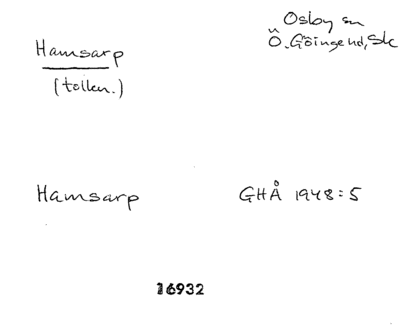 Hamsarp
(tolkn.)
Osby sn
Ö. Göinge hd, Sk
Hamsarp
GHÅ 1948:5
16932